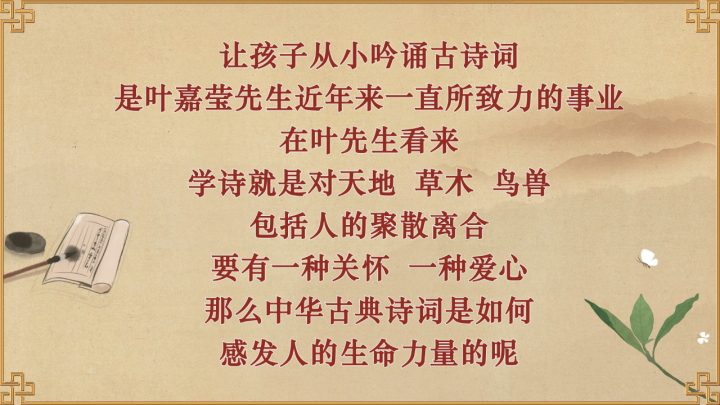 让孩子从小吟诵古诗词
是叶嘉莹先生近年来一直所致力的事业
在叶先生看来
学诗就是对天地 草木 鸟兽
包括人的聚散离合
要有一种关怀 一种爱心
那么中华古典诗词是如何
感发人的生命力量的呢